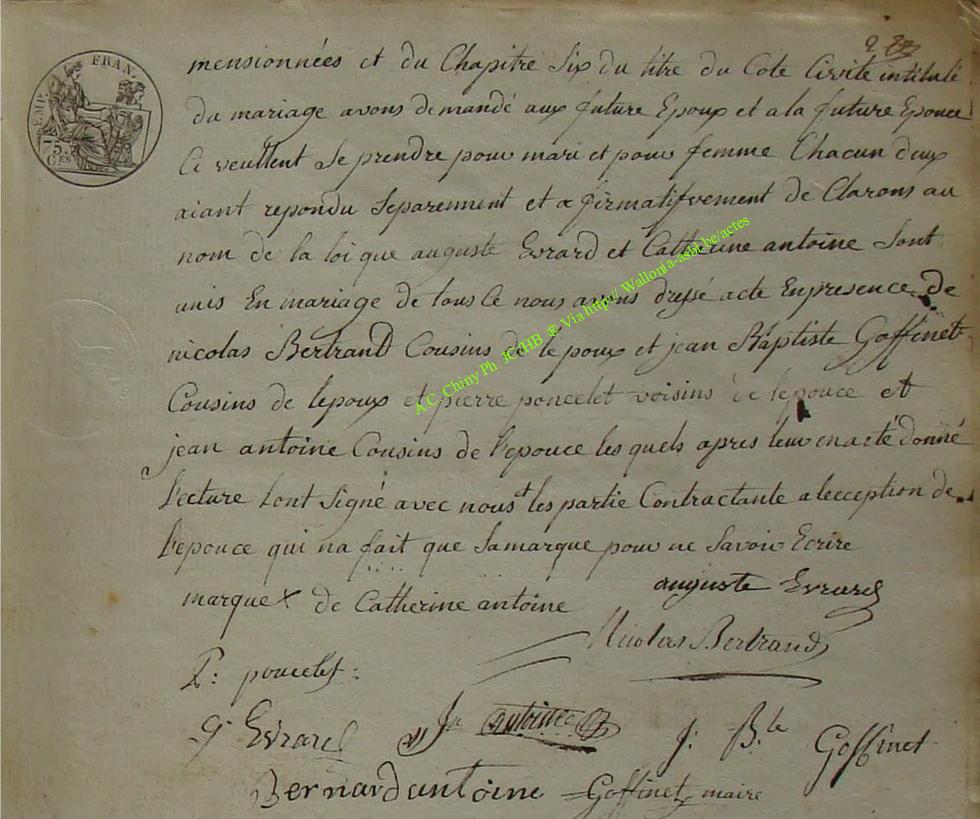 EMP. FRAN.
75.
C.ES
mensionnées et du Chapitre Six du titre du Cote Civite intitulé
du mariage avons demandé aux future Epoux et a la future Epouce
Ci veullent Se prendre pour mari et pour femme Chacun deux
aiant repondu Separennent et afirmatifvement de Clarons au
nom de la loi que auguste Evrard et Catherine antoine Sont
unis En mariage de tous Ce nous avons dressé acte Enpresence de
nicolas Bertrand Cousins de lepoux et jean Baptiste Goffinet
Cousins de lepoux et pierre poncelet voisins de lepouce et
jean antoine Cousins de l'epouce les quels apres leur en acté donné
Lecture Lont Signé avec nous et les partie Contractante a lecception de
l'epouce qui na fait que Samarque pour ne Savoir Ecrire
marque X de Catherine antoine
auguste Evrard
Nicolas Bertrand
P: poncelet:
g Evrard
Jn antoine
J: B.te Goffinet
Bernard antoine
Goffinet maire
A.C. Chiny Ph. JC.HB ® Via http:// Wallonia-asbl.be/actes